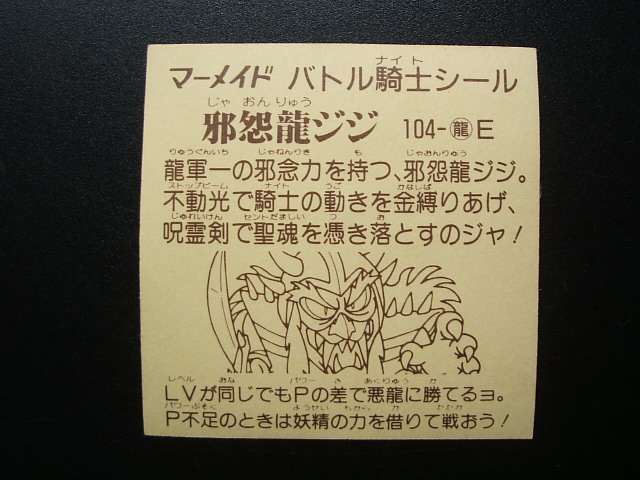 マーメイド バトル騎士シール
ナイト
じゃ おん りゅう
邪怨龍ジジ 104-龍E
りゅうぐんいち じゃねんりき も じゃおんりゅう
龍軍一の邪念力を持つ、邪怨龍ジジ。
ストップビーム ナイト うご かなしば
不動光で騎士の動きを金縛りあげ、
じゅれいけん セントだましい つ お
呪霊剣で聖魂を憑き落とすのジャ!
レベル おな パワー さ あくりゅう か
LVが同じでもPの差で悪龍に勝てるヨ。
パワーぶそく ようせい ちから か たたか
P不足のときは妖精の力を借りて戦おう!